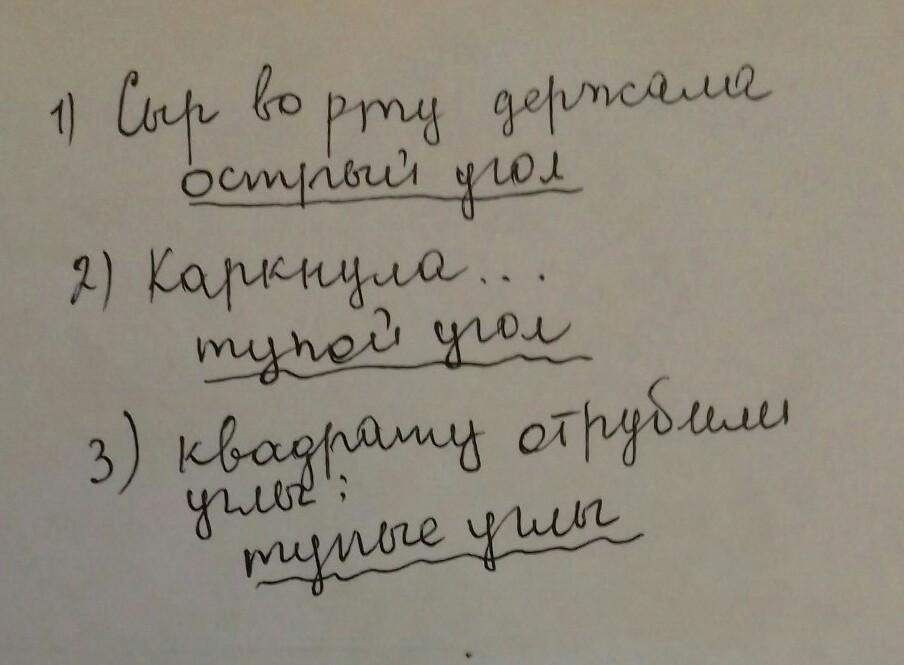 1) Сыр во рту держала
острый угол
2) Каркнула...
тупой угол
3) квадрату отрубили
углы:
тупые углы